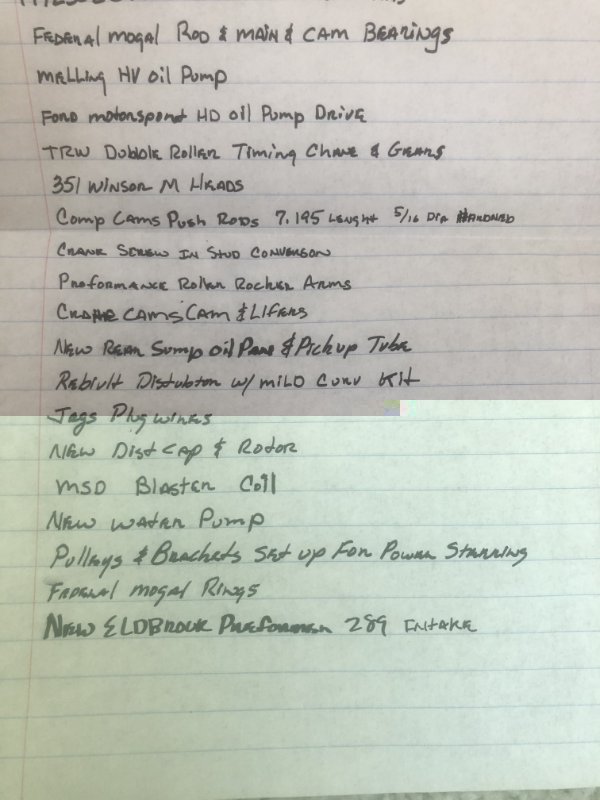 FEDERAl mogAl ROD & MAIN & CAM BEARINGS
MELLING HV oil Pump
FORD motorsport HD oil Pump DRIVE
TRW Dubble Roller Timing CHANE & GEARS
351 WINSOR M HEADS
Comp Cams Push Rods 7.195 LENGHT 5/16 DIA HARDNED
CRANE SCREW IN STUD CONVERSON
PREFORMANCE Roller Rocker Arms
CRANE CAMS CAM & LIFERS
NEW REAR Sump oil Pan & Pickup Tube
Rebivlt Distubtor w/ MILD CURV KIt
Jegs Plug wires
NEW Dist cap & Rotor
MSD Blaster Coil
NEW WATER Pump
Pulleys & Brackets Set up For Power Starring
FEDERAl mogAl Rings
NEW ELDBROCK PREFORMER 289 INTAKE